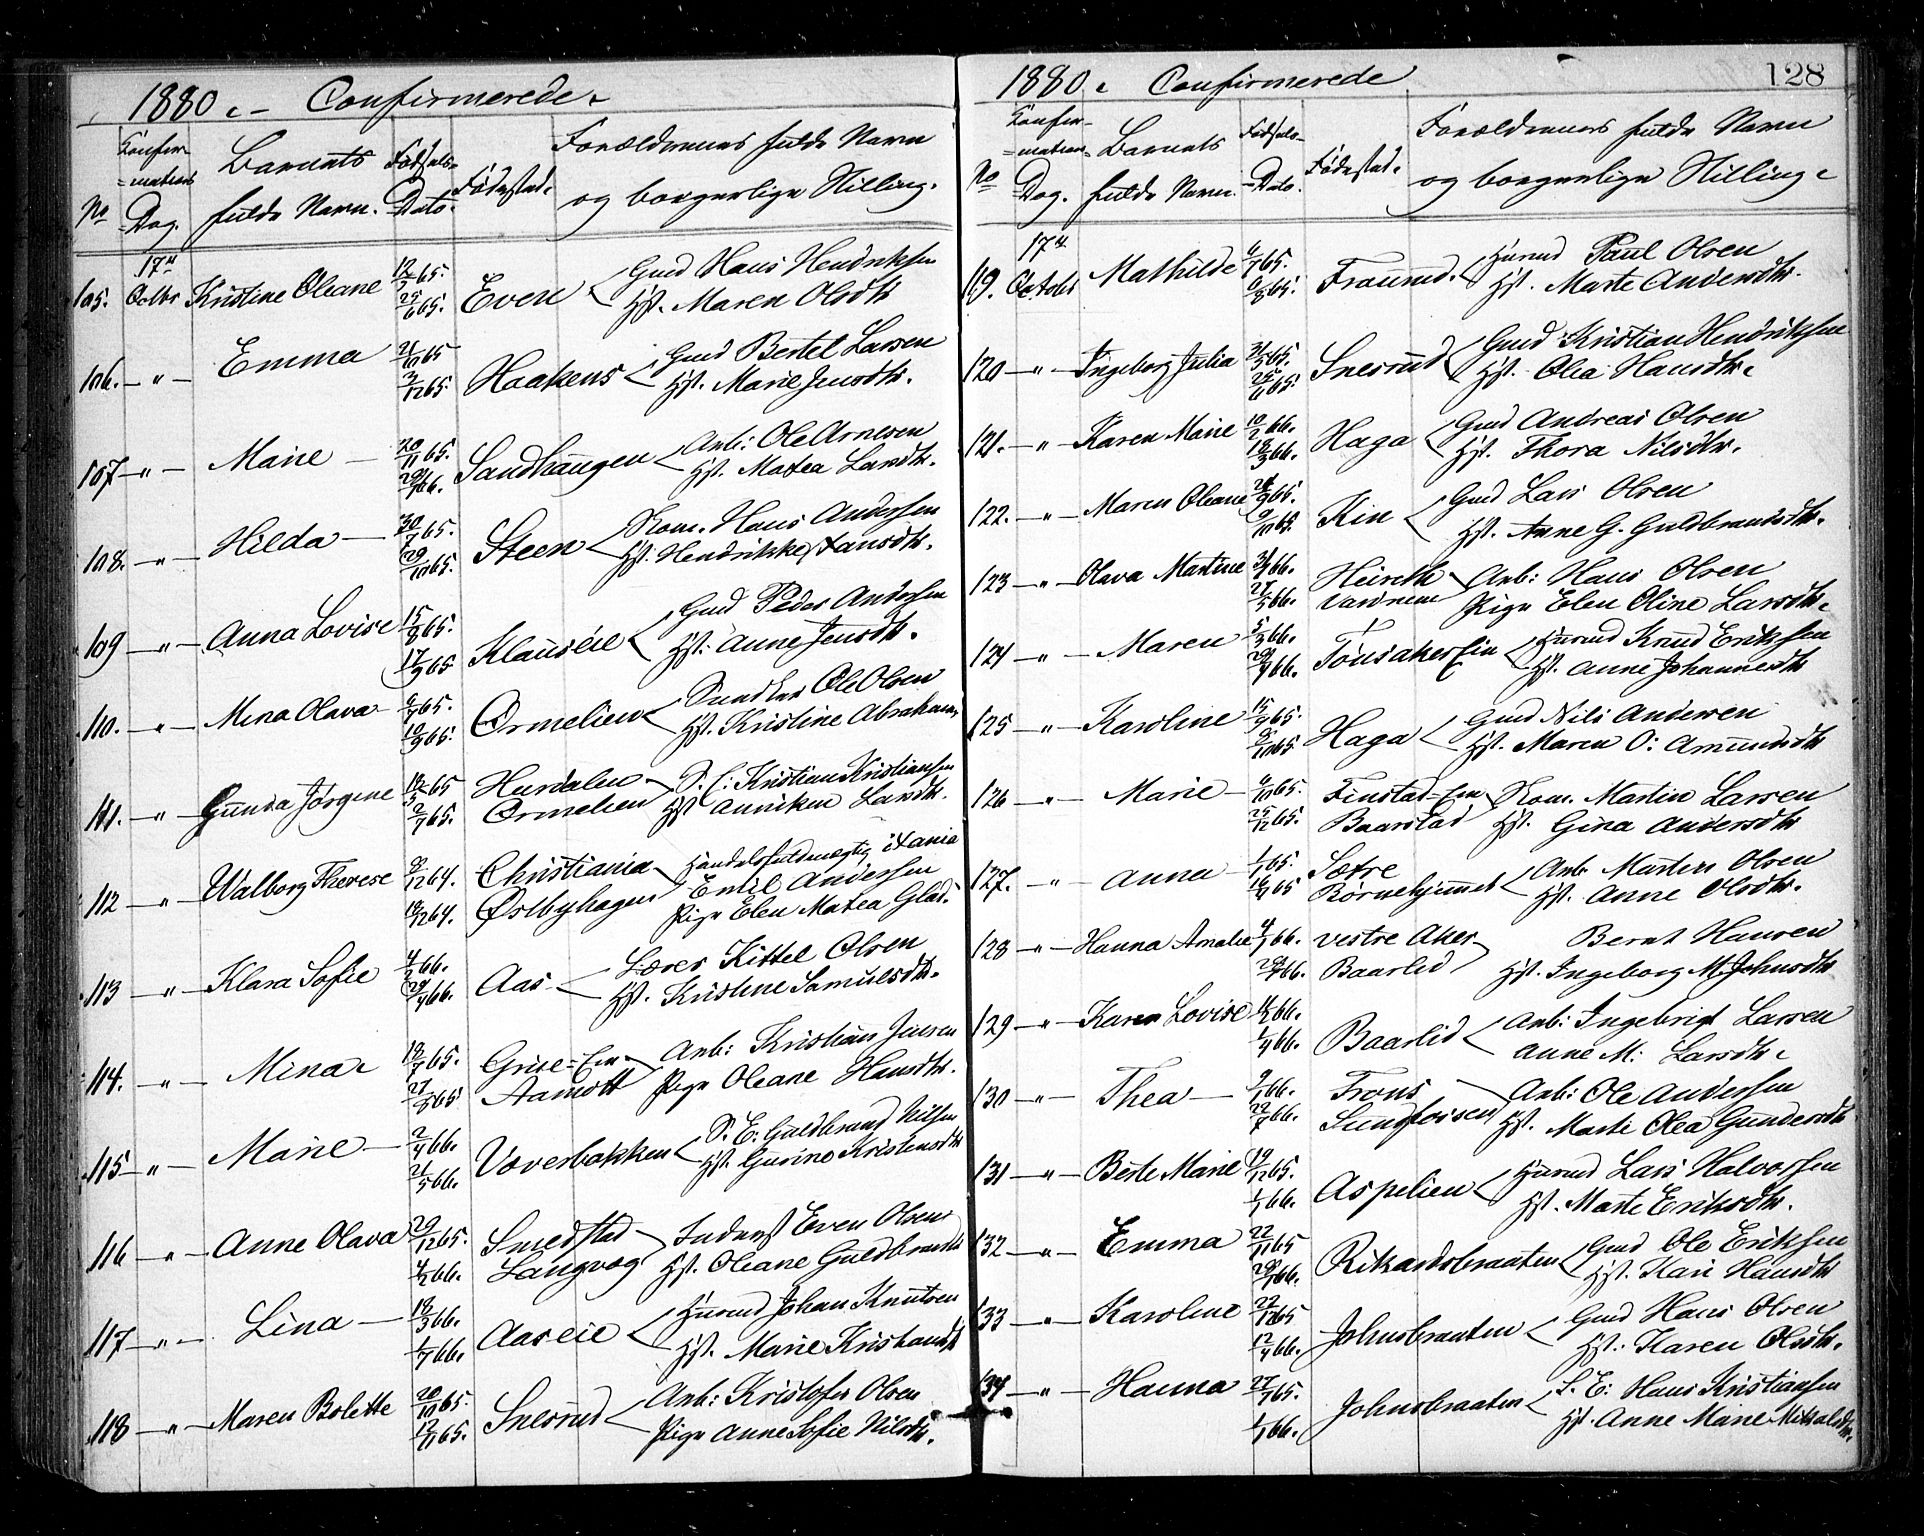 1880. - Confirmerede.
No
Konfirmations Dag.
Barnets fulde Navn.
Fødsels-Dato.
Fødested.
Forældrenes fulde Navn og borgerlige Stilling.
105. 17de Octbr Kristine Oleane 12/5 65. Even Gmd Hans Hendriksen
25/6 65. Hst. Maren Olsdtr
106. - " - Emma 21/10 65 Haakens Gmd Bertel Larsen
3/12 65. Hst. Marie Jensdtr.
107 - " - Marie 20/11 65. Sandhaugen Arb: Ole Arnesen
20/1 66. Hst. Matea Larsdtr.
108. - " - Hilda 30/7 65. Steen Skom. Hans Andersen
29/10 65. Hst: Hendrikke Hansdtr.
109 - " - Anna Lovise 15/8 65. Klauseie Gmd Peder Andersen
17/9 65 Hst: Anne Jensdtr.
110. - " - Mina Olava 6/7 65. Ormelien Snedker Ole Olsen
10/9 65. Hst. Kristine Abrahams
111. - " - Gunda Jørgine 18/5 65 Hurdalen S. E: Kristian Kristiansen
2/7 65. Ormelien Hst Anniken Larsdtr.
112 - " - Walborg Therese 8/12 64. Christiania Handelsfuldmægtig i Xania
18/12 64. Østbyhagen Emil Andersen
Pige Elen Matea Glad.
113 - " - Klara Sofie 4/2 66. Aas Lærer Kittel Olsen
29/4 66. Hst. Kristine Samuelsdtr.
114. - " - Mina 18/7 65. Grue-Ein Arb: Kristian Jensen
27/8 65 Aamodt Pige Oleane Hansdtr.
115 - " - Marie 2/4 66. Væverbakken S. E: Guldbrand Nilsen
21/5 66. Hst. Gurine Kristensdtr
116 - " - Anne Olava 20/12 65. Smedstad Inderst Even Olsen
4/2 66. Langvag Hst. Oleane Guldbrandsdtr
117 - " - Lina 18/3 66. Aaseie Husmd Johan Knutsen
1/7 66. Hst. Marie Kristiansdtr
118 - " - Maren Bolette 20/10 65. Snesrud Arb: Kristofer Olsen
12/11 65. Pige Anne Sofie Nilsdtr.
1880. Confirmerede 128
No
Konfirmations Dag.
Barnets fulde Navn.
Fødsels-Dato.
Fødested.
Forældrenes fulde Navn og borgerlige Stilling.
119. 17de October Mathilde 6/7 65. Fraurud. Husmd Paul Olsen
6/8 65. Hst. Marte Andersdtr.
120 - " - Ingeborg Julia 31/5 65. Snesrud Gmd Kristian Hendriksen
25/6 65. Hst. Olea Hansdtr.
121. - " - Karen Marie 10/2 66. Haga Gmd Andreas Olsen
18/3 66. Hst. Thora Nilsdtr.
122. - " - Maren Oleane 9 65. Kin Gmd Lars Olsen
10 65. Hst. Anne G. Guldbrandsdtr.
123 - " - Olava Martine 3/4 66. Arb: Hans Olsen
21/5 66. Pige Elen Oline Larsdtr.
124 - " - Maren 5/3 66. Tønsaker Ein Husmd Knud Eriksen
29/4 66. Hst. Anne Johannesdtr
125 - " - Karoline 15/9 65. Haga Gmd Nils Andersen
8/10 65 Hst. Maren O: Amundsdtr
126 - " - Marie 6/10 65. Finstad-Ein Skom. Martin Larsen
25/12 65. Baarstad Hst. Gina Andersdtr
127. - " - Anna 1/1 65. Sætre Arb. Martin Olsen
16/4 65 Børnehjemmet Hst. Anne Olsdtr.
128 - " - Hanna Amalie 4/1 66. Vestre Aker Bernt Hansen
66. Baarlid Hst. Ingeborg M. Johnsdtr
129 - " - Karen Lovise 66. Baarlid Arb: Ingebrigt Larsen
1/4 66. Anne M: Larsdtr.
130 - " - Thea 9/1 66. Frons Arb: Ole Andersen
22/7 66. Sundfossen Hst. Marte Olea Gundersdtr
131 - " - Berte Marie 19/12 65. Aspelien Husmd Lars Halvorsen
1/1 66. Hst. Marte Eriksdtr.
132 - " - Emma 22/11 65 Rikardsbraaten Gmd Ole Eriksen
28/1 66. Hst. Kari Hansdtr
133 - " - Karoline 27/12 65 Johnsbraaten Gmd Hans Olsen
12/4 66. Hst. Karen Olsdtr.
134 - " - Hanna 27/7 65. Johnsbraaten S. E: Hans Kristiansen
1/1 66. Hst. Anne Marie Mikalsdtr.